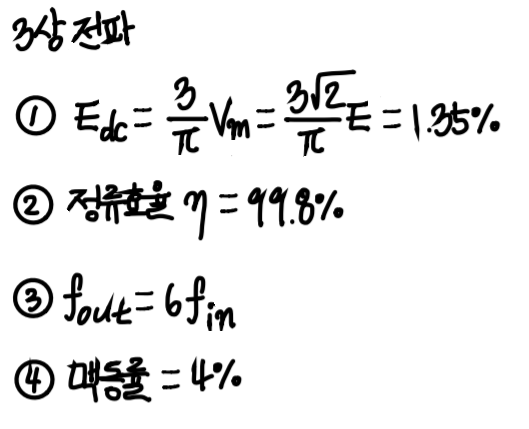 3상 전파
① E_dc = 3/π V_m = 3√2/π E = 1.35%
② 정류효율 η = 99.8%
③ f_out = 6 f_in
④ 맥동률 = 4%